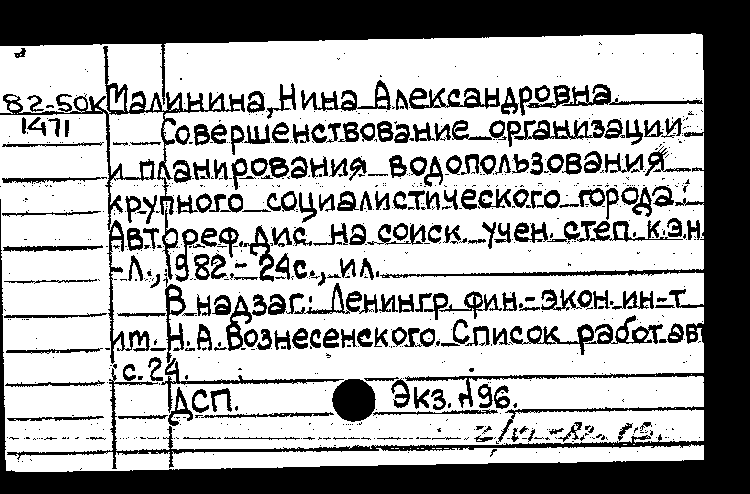 82-50к Малинина, Нина Александровна.
1471 Совершенствование организации
и планирования водопользования
крупного социалистического города:
Автореф. дис. на соиск. учен. степ. к.э.н.
-Л., 1982.- 24с., ил.
В надзаг.: Ленингр. фин.-экон. ин-т
им. Н.А. Вознесенского. Список работ авт
: с. 24.
ДСП. Экз. №96.